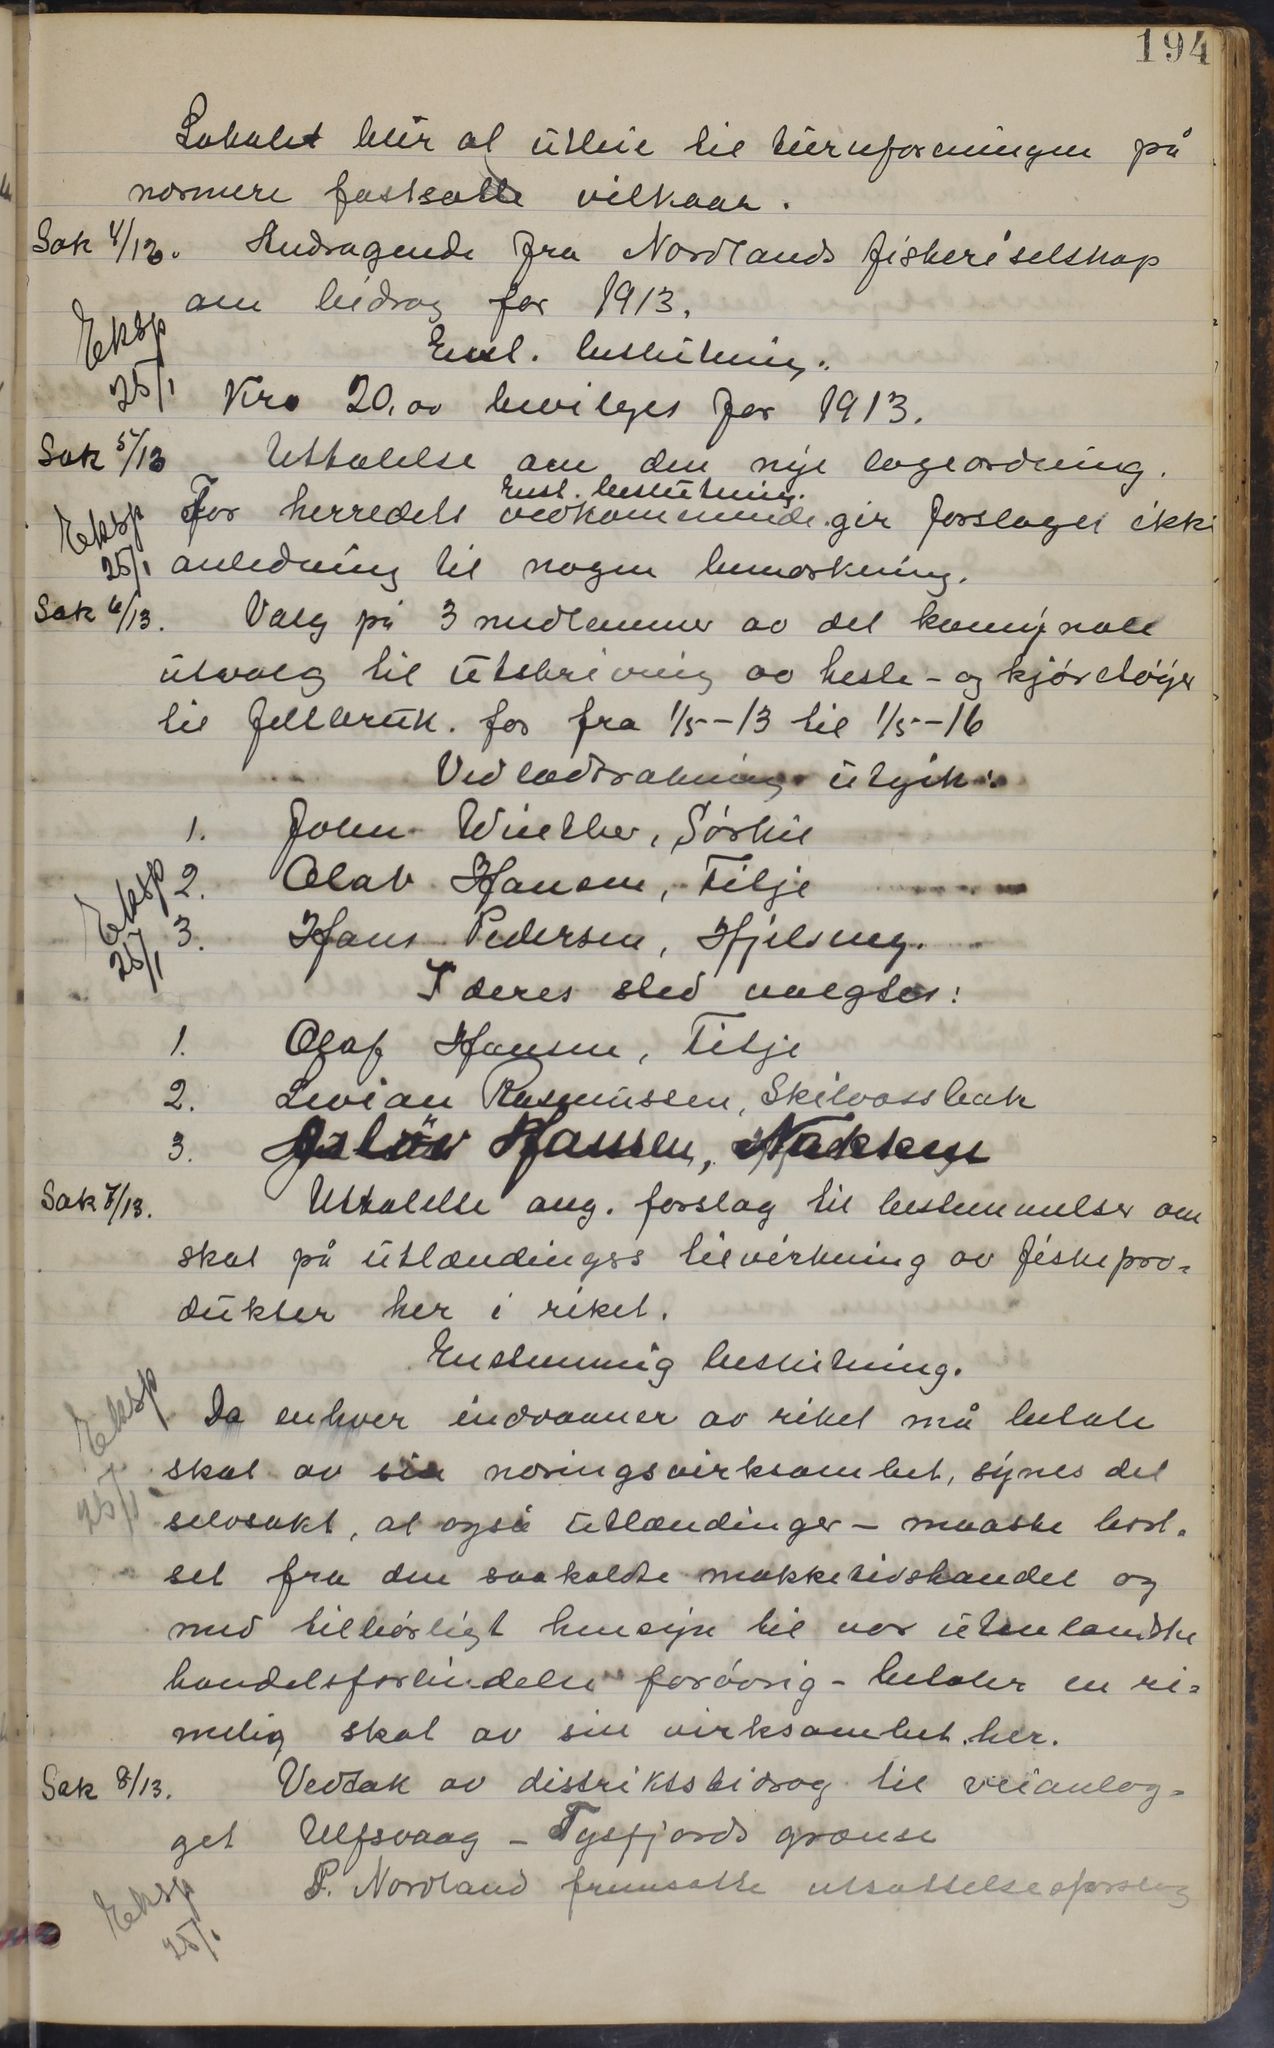 194
Lokalet blir at utleie til turnforeningen på
nærmere fastsatte vilkaar.
Sak 4/13. Andragende fra Nordlands fiskeriselskap
om bidrag for 1913.
Eksp
25/1
Enst. beslutning.
Kro 20.00 bevilges for 1913.
Sak 5/13 Uttalelse om den nye lægeordning.
Enst. beslutning.
For herredets vedkommende gir forslaget ikke
Eksp
25/1
anledning til nogen bemerkning.
Sak 6/13. Valg på 3 medlemmer av det komunale
utvalg til utskrivning av heste- og kjøretøier
til feltbruk. for fra 1/5-13 til 1/5-16
Ved lodtrækning utgik:
1. John Winther, Sørkil
2. Olav Hansen, Tilje
3. Hans Pedersen, Hjelvug.
Eksp
25/1
I deres sted valgtes:
1. Olaf Hansen, Tilje
2. Livian Rasmussen, Skilvassbak
3. Hansen, Nakken
Sak 7/13. Uttalelse ang. forslag til bestemmelser om
skat på utlændingers tilvirkning av fiskepro-
dukter her i riket.
Enstemmig beslutning.
Eksp
25/1
Da enhver indvaaner av riket må betale
skat av sin næringsvirksomhet, synes det
selvsakt, at også utlændinger - maaske bort-
set fra den saakaldte makketidshandel og
med tilbørligt hensyn til vor utenlandske
handelsforbindelse forøvrig - betaler en ri-
melig skat av sin virksomhet her.
Sak 8/13. Vedtak av distriktsbidrag til veianlæg-
get Ulfsvaag - Tysfjords grænse
P. Nordland fremsatte utsættelsesforslag
Eksp
25/1